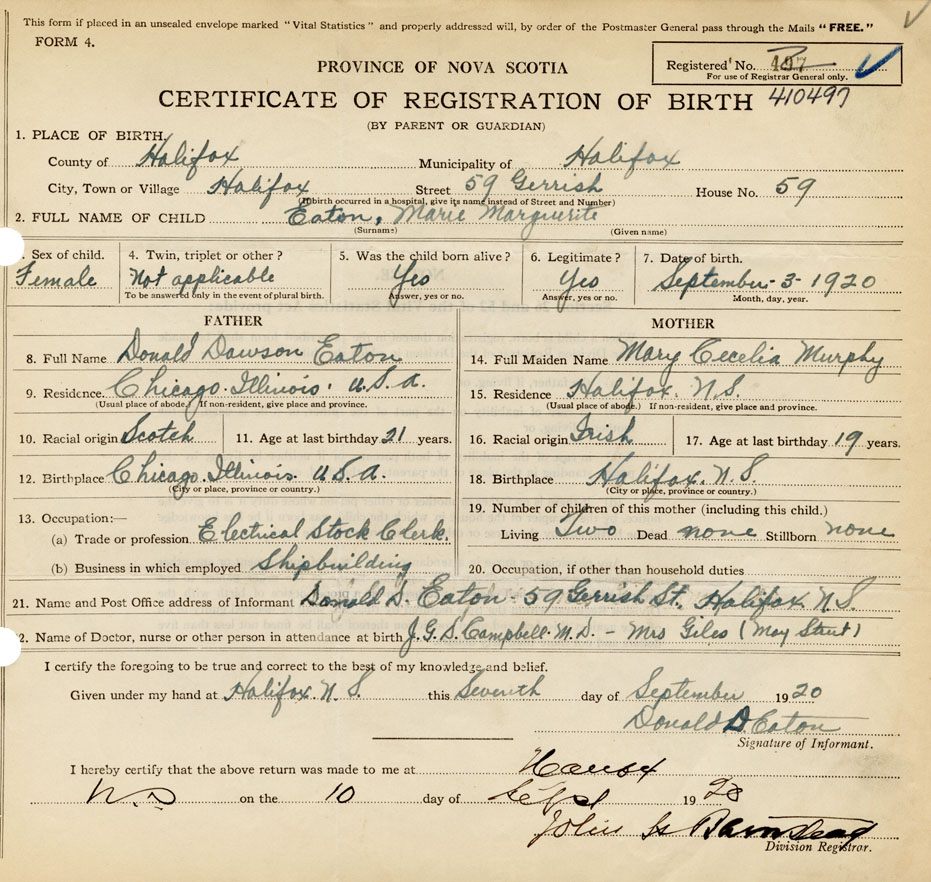 This form if placed in an unsealed envelope marked "Vital Statistics" and properly addressed will, by order of the Postmaster General pass through the Mails "FREE."
FORM 4.
Registered No. 497
For use of Registrar General only.
PROVINCE OF NOVA SCOTIA
CERTIFICATE OF REGISTRATION OF BIRTH 410497
(BY PARENT OR GUARDIAN)
1. PLACE OF BIRTH.
County of Halifax Municipality of Halifax
City, Town or Village Halifax Street 59 Gerrish House No. 59
(If birth occurred in a hospital, give its name instead of Street and Number)
2. FULL NAME OF CHILD Eaton, Marie Marguerite
(Surname) (Given name)
. Sex of child. 4. Twin, triplet or other? 5. Was the child born alive? 6. Legitimate? 7. Date of birth.
Female Not applicable Yes Yes September-3-1920
To be answered only in the event of plural birth. Answer, yes or no. Answer, yes or no. Month, day, year.
FATHER MOTHER
8. Full Name Donald Dawson Eaton 14. Full Maiden Name Mary Cecelia Murphy
9. Residence. Chicago. Illinois. U.S.A. 15. Residence Halifax. N.S.
(Usual place of abode.) If non-resident, give place and province. (Usual place of abode.) If non-resident, give place and province.
10. Racial origin Scotch 11. Age at last birthday 21 years. 16. Racial origin Irish 17. Age at last birthday 19 years.
12. Birthplace Chicago. Illinois. U.S.A. 18. Birthplace Halifax. N.S.
(City or place, province or country.) (City or place, province or country.)
13. Occupation:— 19. Number of children of this mother (including this child.)
(a) Trade or profession Electrical Stock Clerk. Living Two Dead none Stillborn none
(b) Business in which employed Shipbuilding 20. Occupation, if other than household duties
21. Name and Post Office address of Informant Donald D. Eaton - 59 Gerrish St. Halifax N.S.
2. Name of Doctor, nurse or other person in attendance at birth J.G.D. Campbell. M.D. - Mrs Giles (May Street)
I certify the foregoing to be true and correct to the best of my knowledge and belief.
Given under my hand at Halifax. N.S. this Seventh day of September 1920
Donald D Eaton
Signature of Informant.
I hereby certify that the above return was made to me at
N.S on the 10 day of Sept 19
John
Division Registrar.